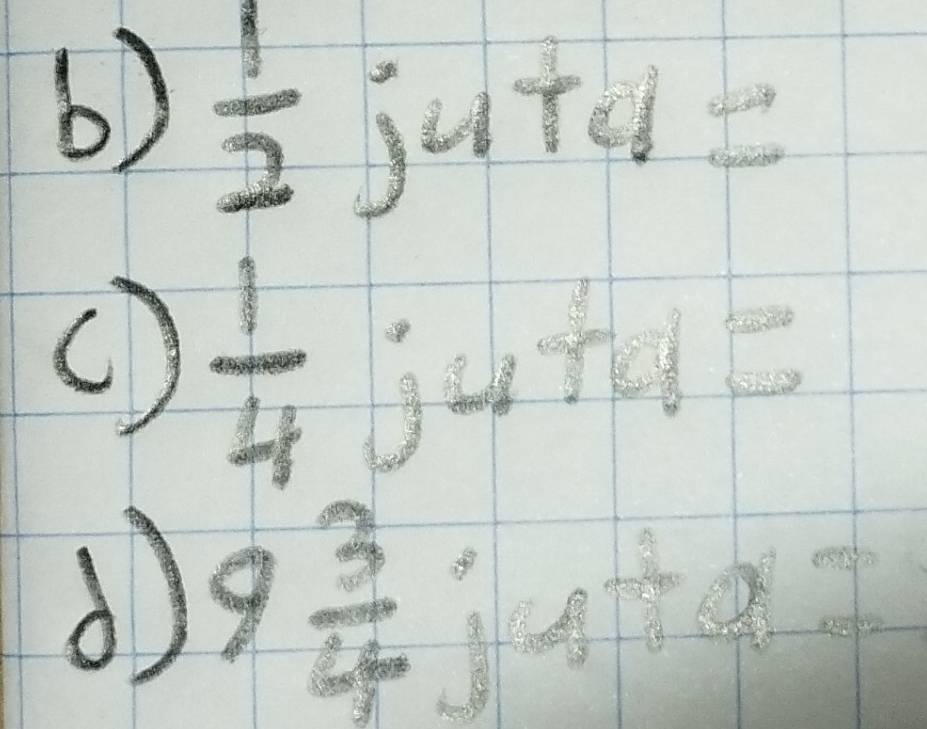 b) 1/2 juta =
c) 1/4 juta =
d) 9 3/4 juta =